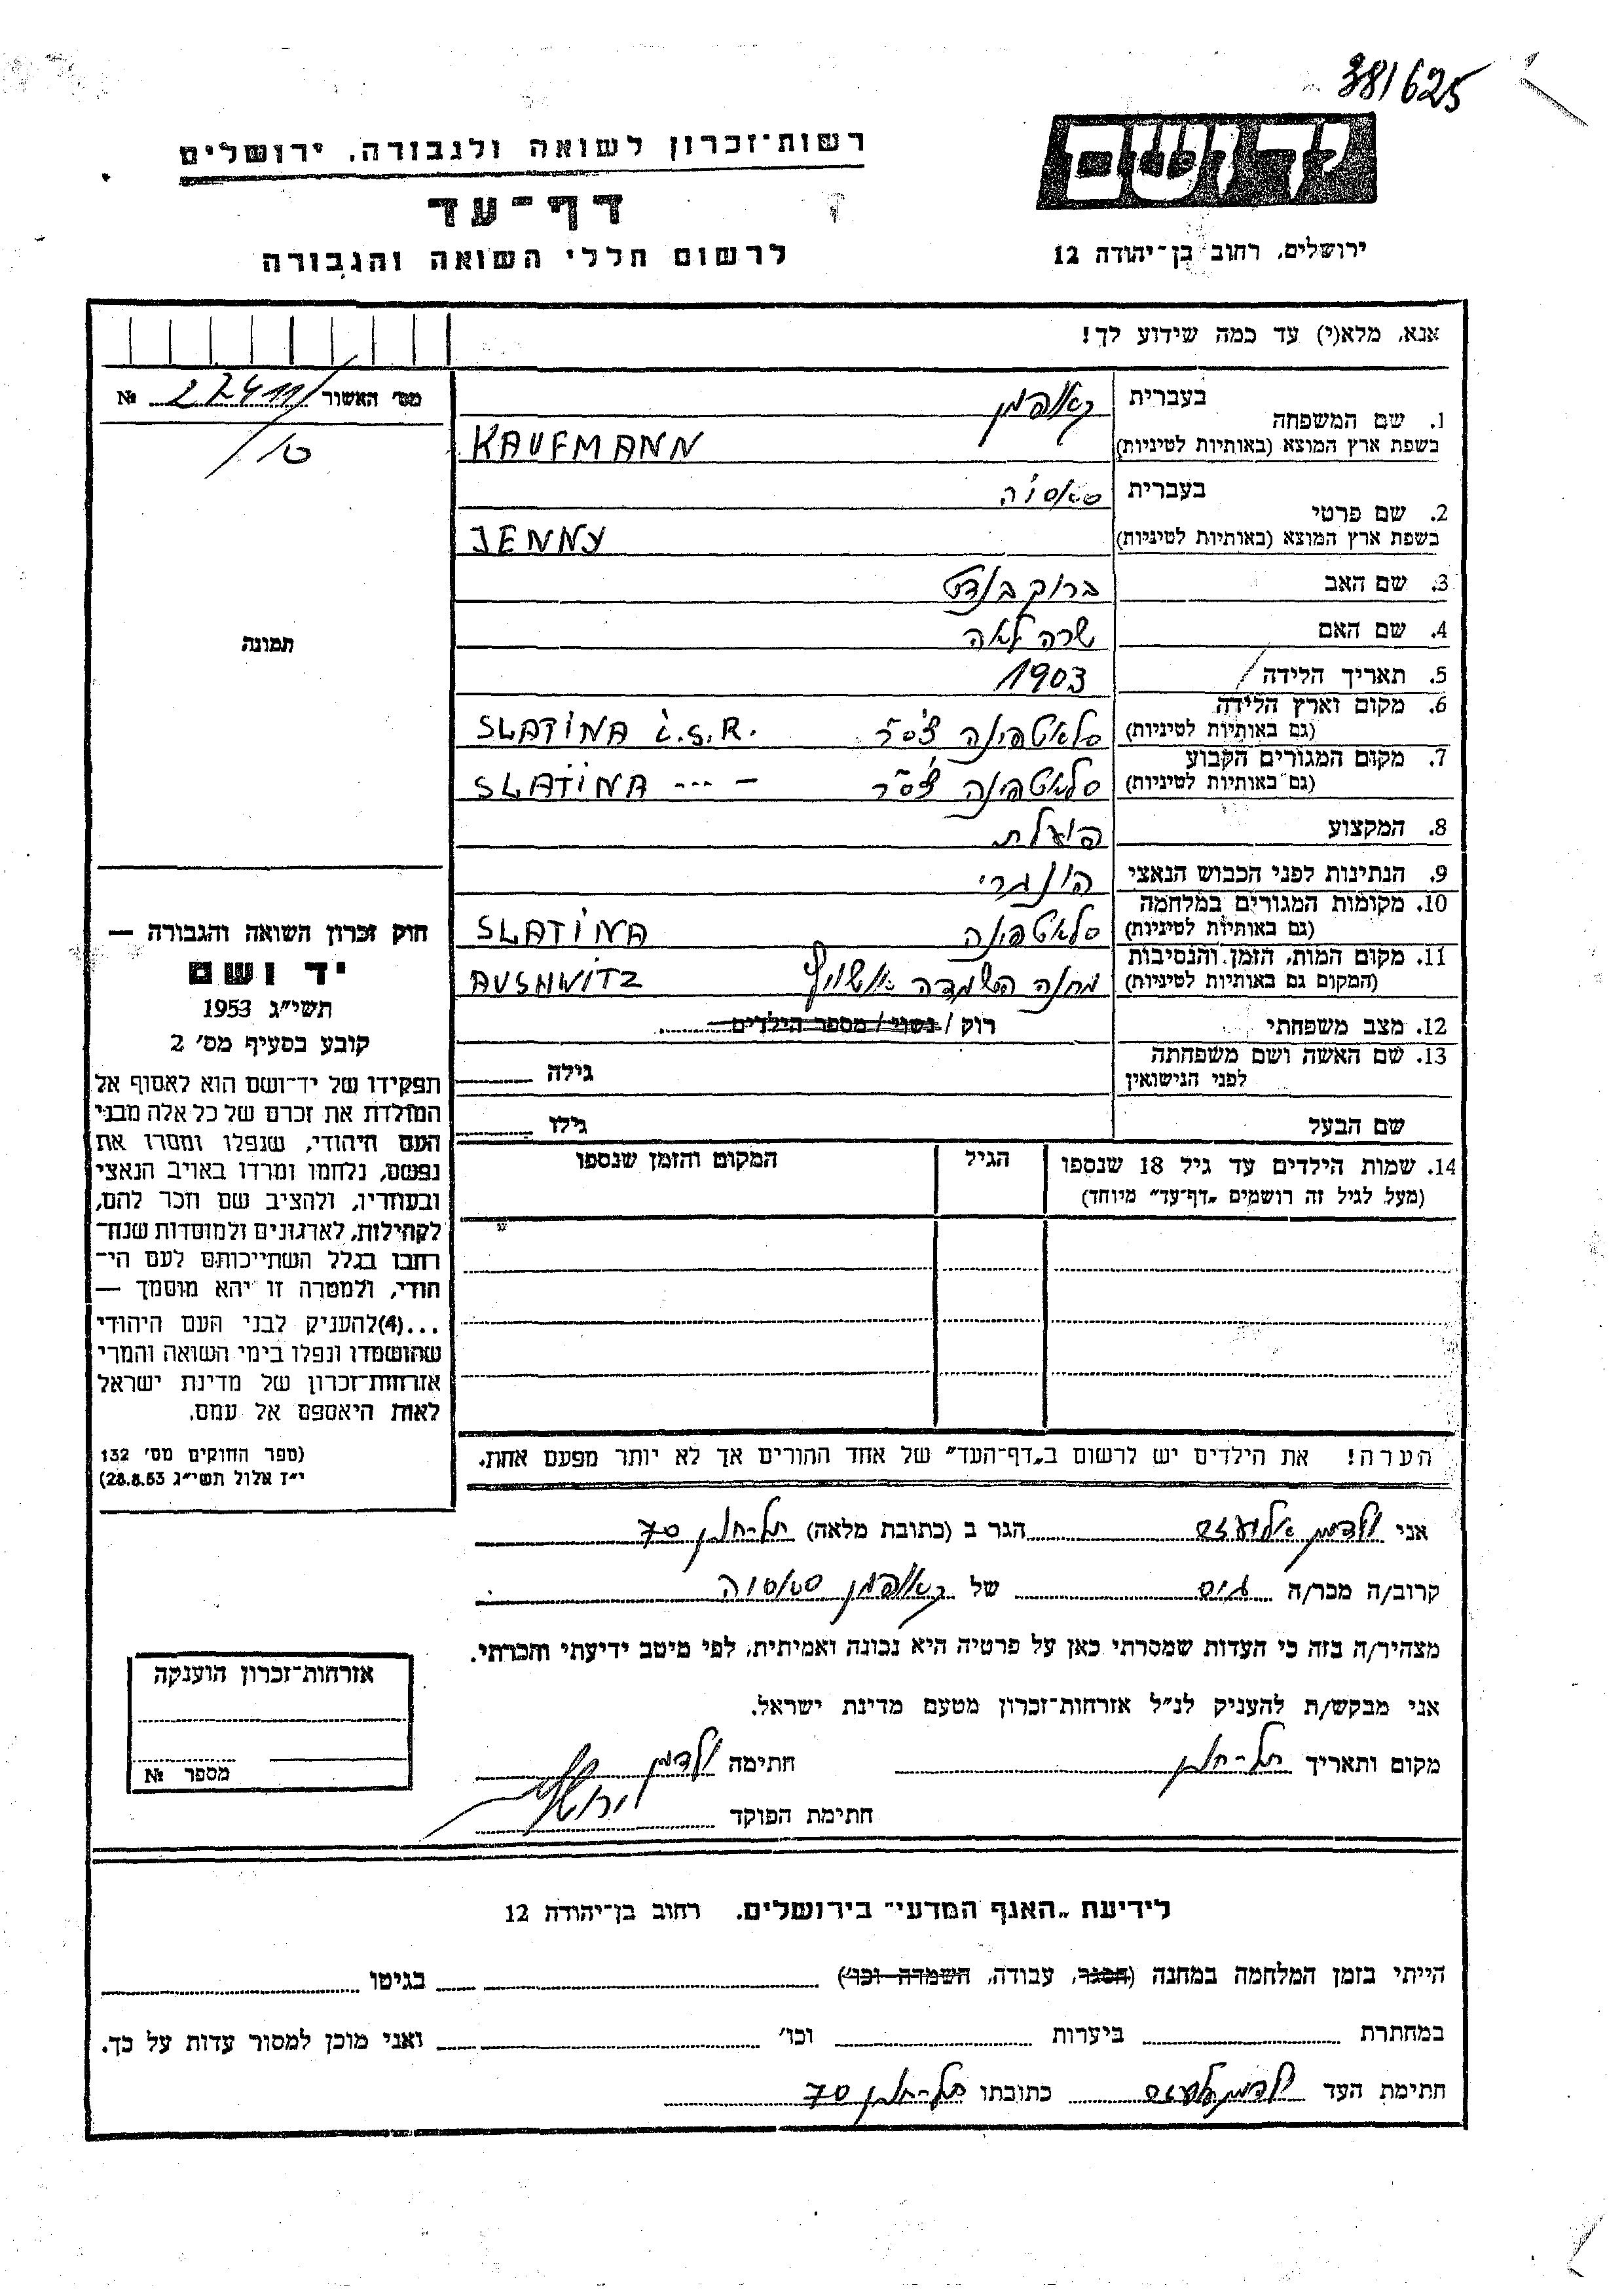 381625
יד ושם
ירושלים, רחוב בן־יהודה 12
רשות־זכרון לשואה ולגבורה, ירושלים
דף־עד
לרשום חללי השואה והגבורה
אנא, מלא(י) עד כמה שידוע לך!
מס׳ האשור 27411 №
1. שם המשפחה
בעברית קאופמן
בשפת ארץ המוצא (באותיות לטיניות) KAUFMANN
2. שם פרטי
בעברית
בשפת ארץ המוצא (באותיות לטיניות) JENNY
3. שם האב ברוך בנדט
4. שם האם שרה לאה
5. תאריך הלידה 1903
6. מקום וארץ הלידה
(גם באותיות לטיניות) סלאטפינה צ׳ס״ר SLATINA Č.S.R.
7. מקום המגורים הקבוע
(גם באותיות לטיניות) סלאטפינה צ׳ס״ר SLATINA
8. המקצוע פועלת
9. הנתינות לפני הכבוש הנאצי הונגרי
10. מקומות המגורים במלחמה
(גם באותיות לטיניות) סלאטפינה SLATINA
11. מקום המות, הזמן והנסיבות
(המקום גם באותיות לטיניות) מחנה השמדה אושוויץ AUSHWITZ
12. מצב משפחתי רוק / נשוי / מספר הילדים
13. שם האשה ושם משפחתה
לפני הנישואין גילה
שם הבעל גילו
14. שמות הילדים עד גיל 18 שנספו
(מעל לגיל זה רושמים „דף־עד״ מיוחד)
הגיל
המקום והזמן שנספו
הערה! את הילדים יש לרשום ב„דף־העד״ של אחד ההורים אך לא יותר מפעם אחת.
תמונה
חוק זכרון השואה והגבורה —
יד ושם
תשי״ג 1953
קובע בסעיף מס׳ 2
תפקידו של יד־ושם הוא לאסוף אל
המולדת את זכרם של כל אלה מבני
העם היהודי, שנפלו ומסרו את
נפשם, נלחמו ומרדו באויב הנאצי
ובעוזריו, ולהציב שם וזכר להם,
לקהילות, לארגונים ולמוסדות שנח־
רבו בגלל השתייכותם לעם הי־
הודי, ולמטרה זו יהא מוסמך —
...(4)להעניק לבני העם היהודי
שהושמדו ונפלו בימי השואה והמרי
אזרחות־זכרון של מדינת ישראל
לאות היאספם אל עמם.
(ספר החוקים מס׳ 132
י״ז אלול תשי״ג 28.8.53)
אני ולדמן אליעזר הגר ב (כתובת מלאה) תל-חנן 70
קרוב/ה מכר/ה גיס של קאופמן
מצהיר/ה בזה כי העדות שמסרתי כאן על פרטיה היא נכונה ואמיתית, לפי מיטב ידיעתי והכרתי.
אני מבקש/ת להעניק לנ״ל אזרחות־זכרון מטעם מדינת ישראל.
מקום ותאריך תל-חנן חתימה ולדמן
חתימת הפוקד
אזרחות־זכרון הוענקה
מספר №
לידיעת „האגף המדעי״ בירושלים. רחוב בן־יהודה 12
הייתי בזמן המלחמה במחנה (הסגר, עבודה, השמדה וכו׳) בגיטו
במחתרת ביערות וכו׳ ואני מוכן למסור עדות על כך.
חתימת העד ולדמן אליעזר כתובתו תל-חנן 70